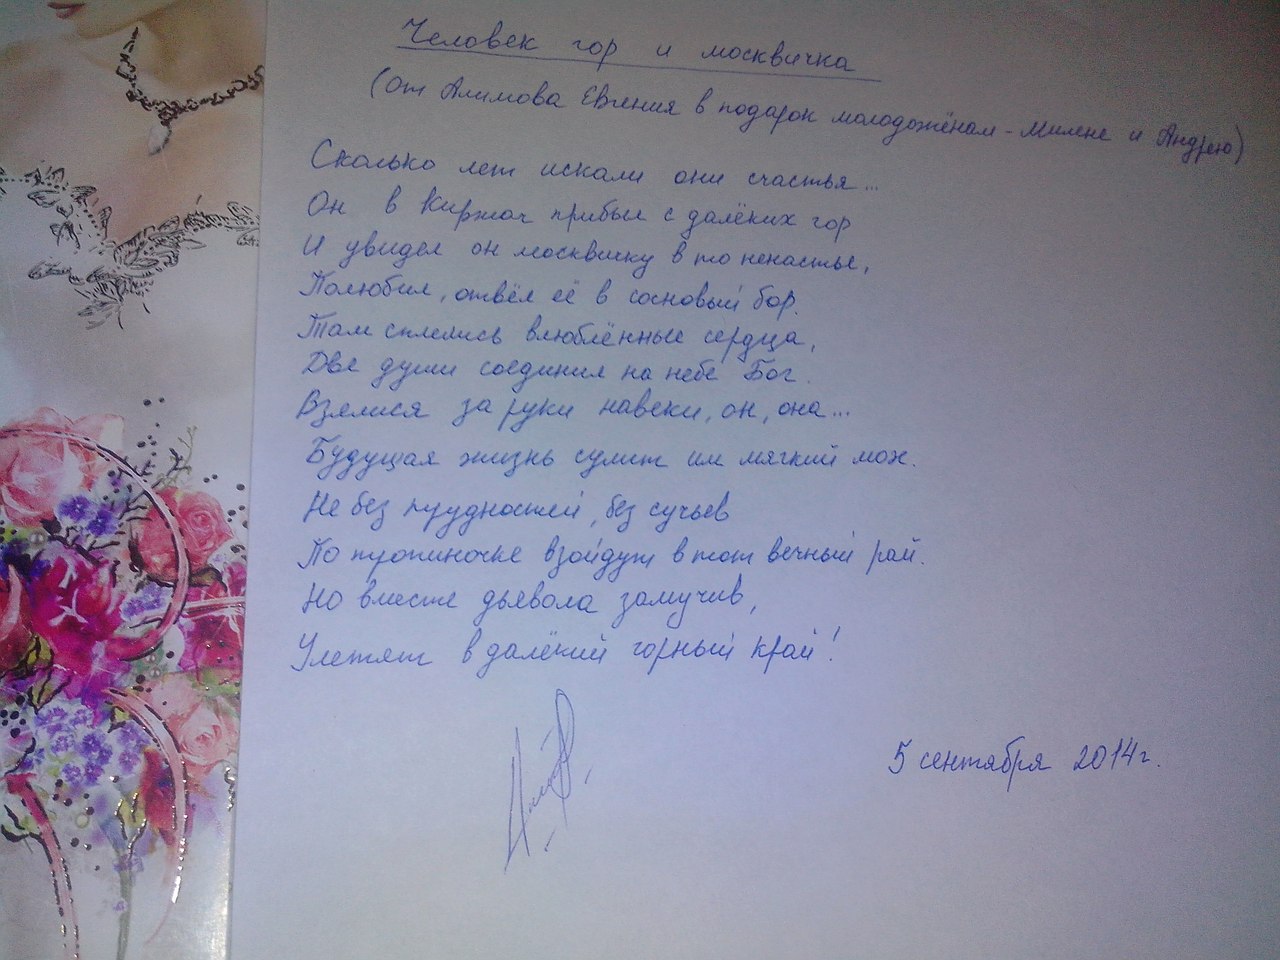 Человек гор и москвичка
(от Алимова Евгения в подарок молодожёнам - Милене и Андрею)
Сколько лет искали они счастья...
Он в Киржач прибыл с далёких гор
И увидел он москвичку в то ненастье,
Полюбил, отвёл её в сосновый бор.
Там сплелись влюблённые сердца,
Две души соединил на небе Бог.
Взялися за руки навеки, он, она...
Будущая жизнь сулит им мягкий мох.
Не без трудностей, без сучьев
По тропиночке взойдут в тот вечный рай.
Но вместе дьявола замучив,
Улетят в далёкий горный край!
5 сентября 2014г.